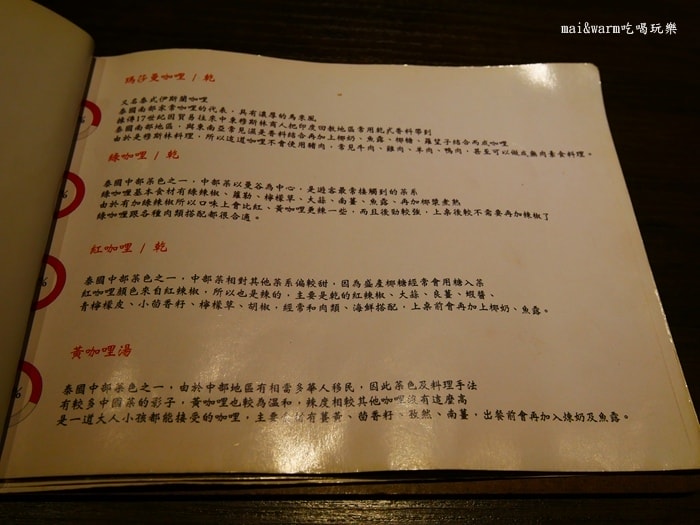 mai&warm吃喝玩樂
瑪莎曼咖哩 / 乾
又名泰式伊斯蘭咖哩
泰國南部家常咖哩的代表,具有濃厚的馬來風
緣傳17世紀因貿易往來中東穆斯林商人把印度回教地區常用乾式香料帶到
泰國南部地區,與東南亞常見溫是香料結合再加上椰奶、魚露、椰糖、羅望子結合而成咖哩
由於是穆斯林料理,所以這道咖哩不會使用豬肉,常見牛肉、雞肉、羊肉、鴨肉,甚至可以做成無肉素食料理。
綠咖哩 / 乾
泰國中部菜色之一,中部菜以曼谷為中心,是遊客最常接觸到的菜系
綠咖哩基本食材有綠辣椒、羅勒、檸檬草、大蒜、南薑、魚露、再加椰漿煮熟
由於有加綠辣椒所以口味上會比紅、黃咖哩更辣一些,而且後勁較強,上桌後較不需要再加辣椒了
綠咖哩跟各種肉類搭配都很合適。
紅咖哩 / 乾
泰國中部菜色之一,中部菜相對其他菜系偏較甜,因為盛產椰糖經常會用糖入菜
紅咖哩顏色來自紅辣椒,所以也是辣的,主要是乾的紅辣椒、大蒜、良薑、蝦醬、
青檸檬皮、小茴香籽、檸檬草、胡椒,經常和肉類、海鮮搭配,上桌前會再加上椰奶、魚露。
黃咖哩湯
泰國中部菜色之一,由於中部地區有相當多華人移民,因此菜色及料理手法
有較多中國菜的影子,黃咖哩也較為溫和,辣度相較其他咖哩沒有這麼高
是一道大人小孩都能接受的咖哩,主要食材有薑黃、茴香籽、孜然、南薑,出餐前會再加入煉奶及魚露。